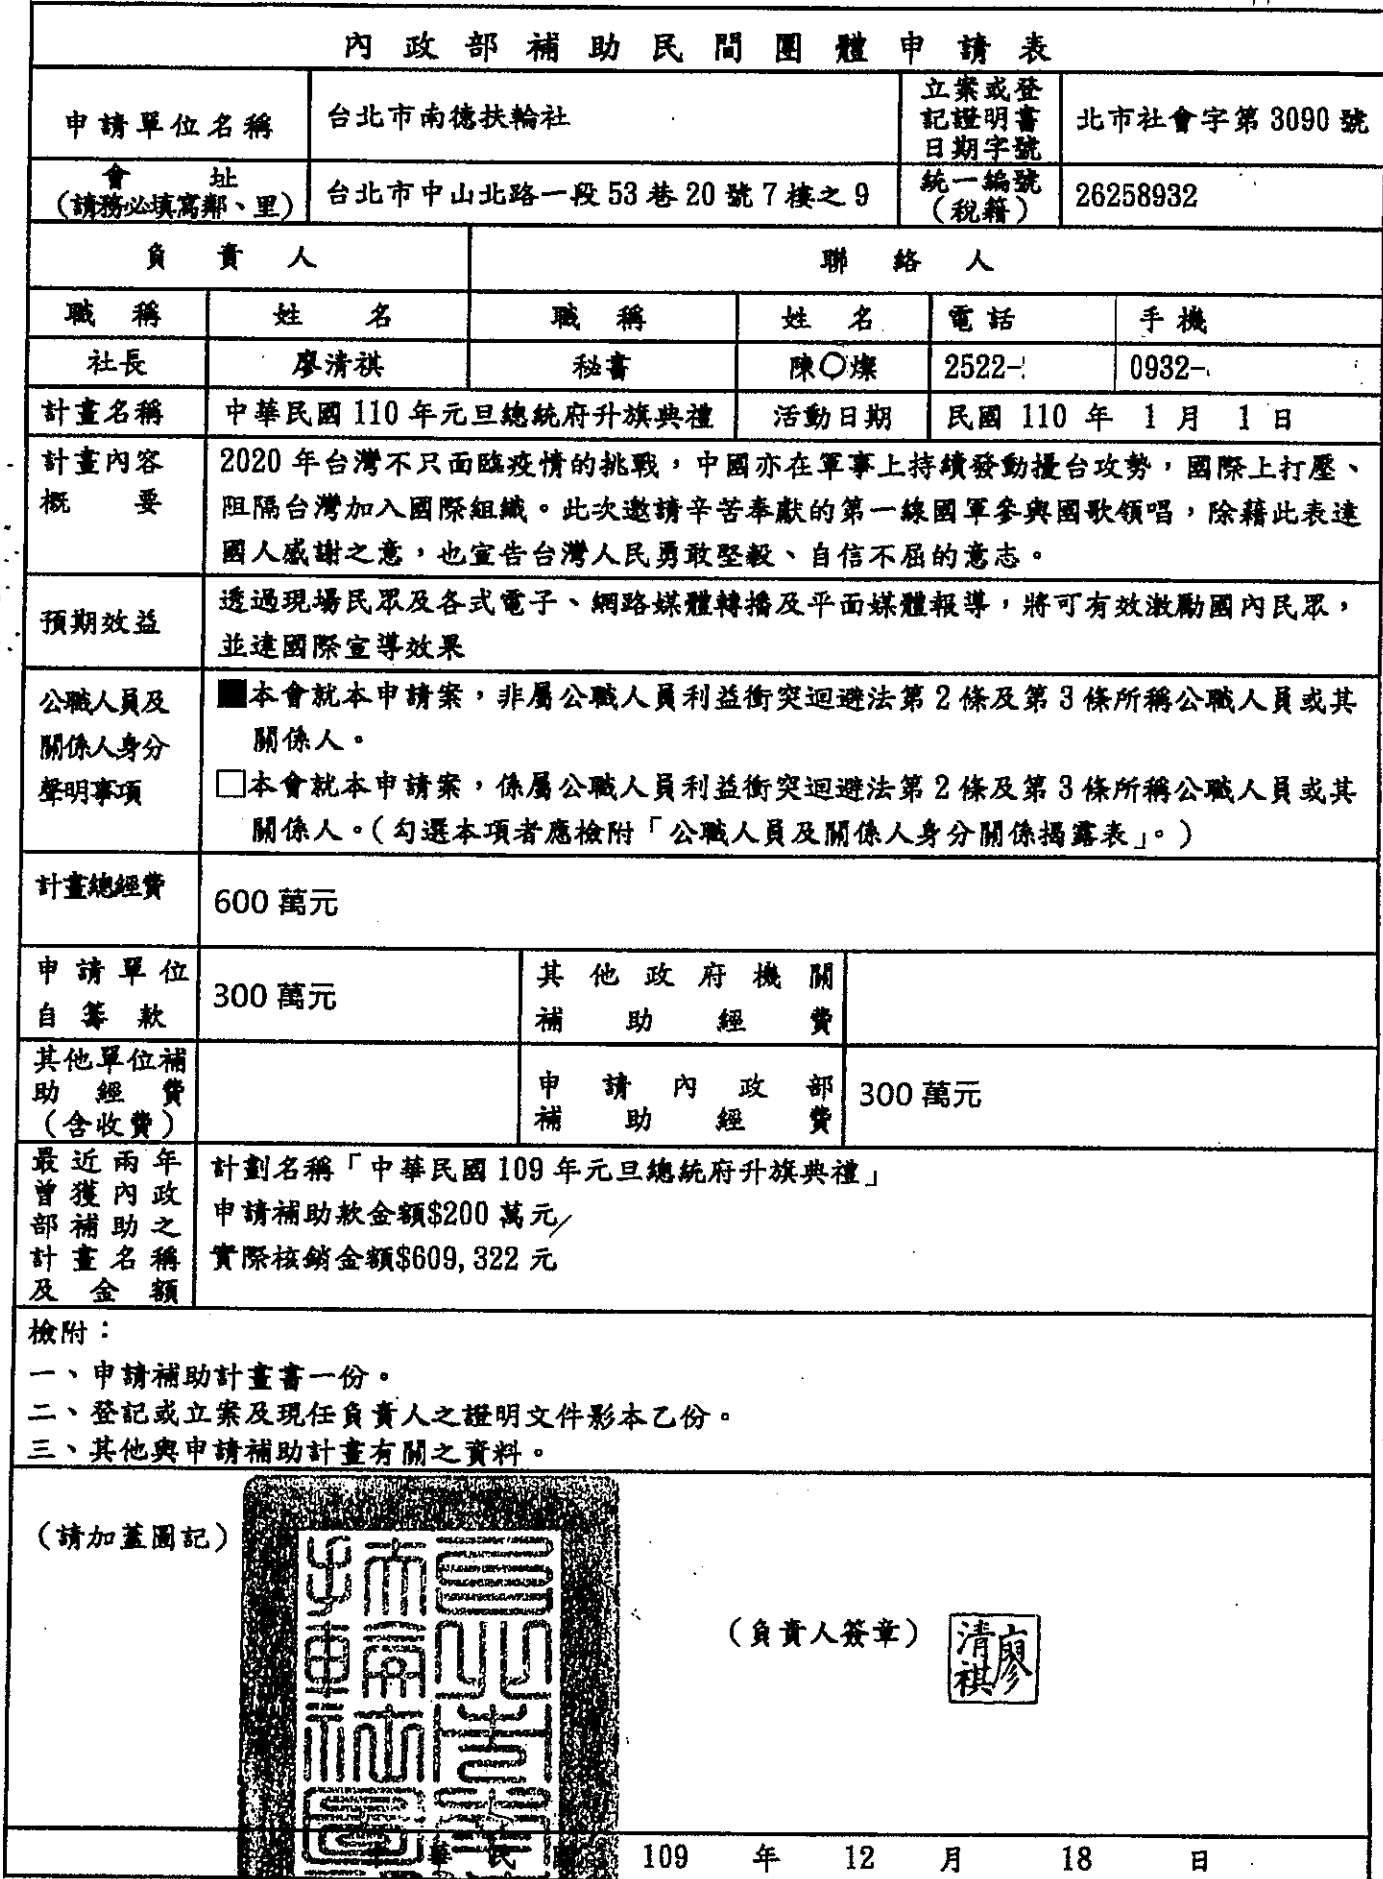 內政部補助民間團體申請表
申請單位名稱
台北市南德扶輪社
立案或登
記證明書
日期字號
北市社會字第 3090 號
會址
(請務必填寫鄰、里)
台北市中山北路一段 53 巷 20 號 7 樓之 9
統一編號
(稅籍)
26258932
負責人
聯絡人
職稱
姓名
職稱
姓名
電話
手機
社長
廖清祺
秘書
陳○燦
2522-
0932-
計畫名稱
中華民國 110 年元旦總統府升旗典禮
活動日期
民國 110 年 1 月 1 日
計畫內容
概要
2020 年台灣不只面臨疫情的挑戰,中國亦在軍事上持續發動擾台攻勢,國際上打壓、
阻隔台灣加入國際組織。此次邀請辛苦奉獻的第一線國軍參與國歌領唱,除藉此表達
國人感謝之意,也宣告台灣人民勇敢堅毅、自信不屈的意志。
預期效益
透過現場民眾及各式電子、網路媒體轉播及平面媒體報導,將可有效激勵國內民眾,
並達國際宣導效果
公職人員及
關係人身分
聲明事項
■本會就本申請案,非屬公職人員利益衝突迴避法第 2 條及第 3 條所稱公職人員或其
關係人。
□本會就本申請案,係屬公職人員利益衝突迴避法第 2 條及第 3 條所稱公職人員或其
關係人。(勾選本項者應檢附「公職人員及關係人身分關係揭露表」。)
計畫總經費
600 萬元
申請單位
自籌款
300 萬元
其他政府機關
補助經費
其他單位補
助經費
(含收費)
申請內政部
補助經費
300 萬元
最近兩年
曾獲內政
部補助之
計畫名稱
及金額
計劃名稱「中華民國 109 年元旦總統府升旗典禮」
申請補助款金額$200 萬元/
實際核銷金額$609,322 元
檢附:
一、申請補助計畫書一份。
二、登記或立案及現任負責人之證明文件影本乙份。
三、其他與申請補助計畫有關之資料。
(請加蓋圖記)
(負責人簽章)
廖清祺
華民 109 年 12 月 18 日